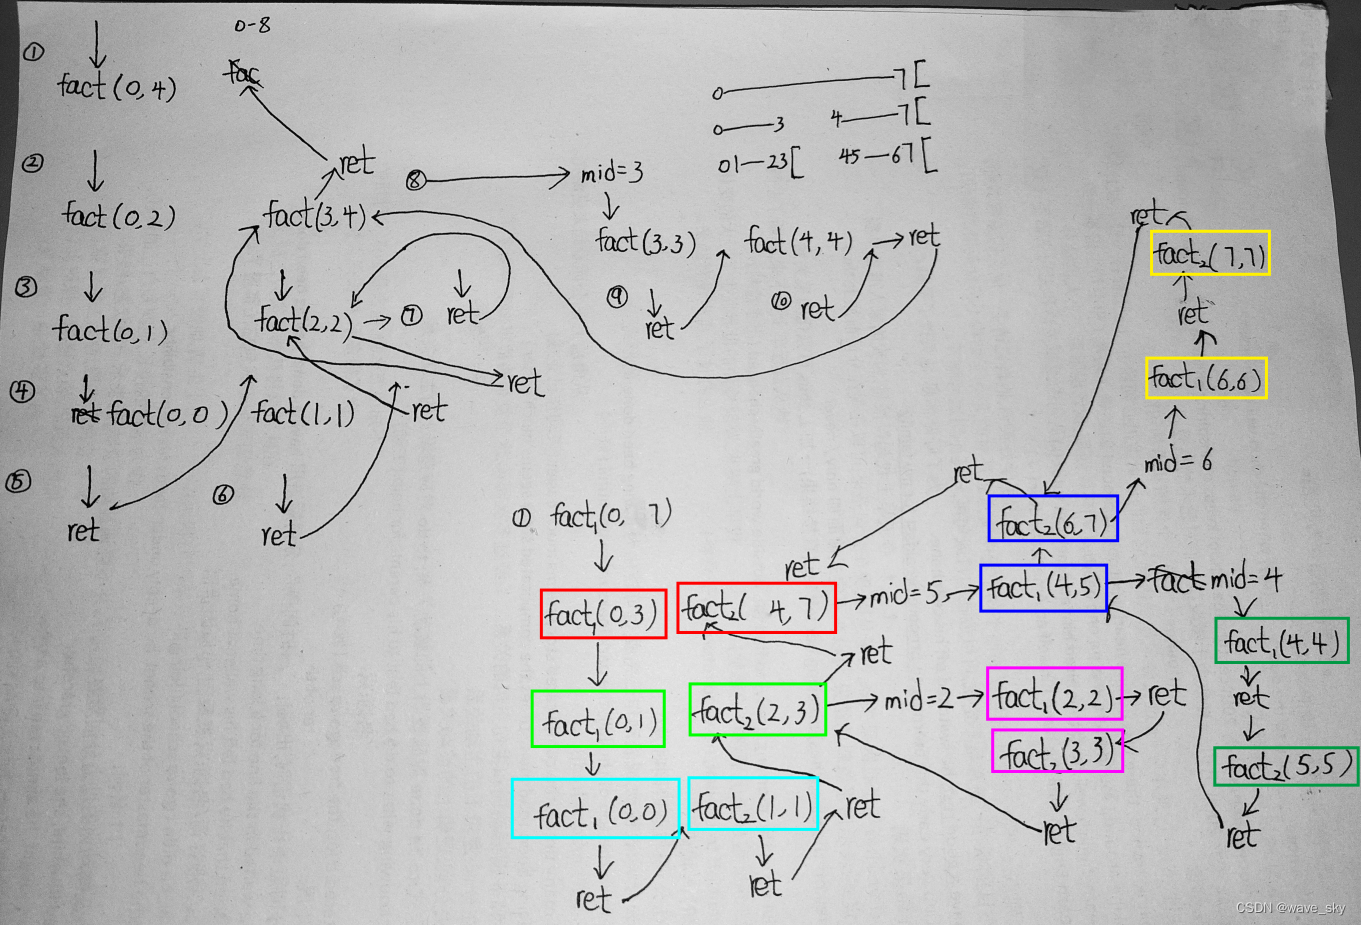 0-8
①
fact(0,4)
fac
②
fact(0,2)
fact(3,4)
ret
⑧
mid=3
fact(3,3)
fact(4,4)
ret
③
fact(0,1)
fact(2,2)
⑦
ret
⑨
ret
⑩
ret
ret
④
ret fact(0,0)
fact(1,1)
ret
⑤
ret
⑥
ret
0 7[
0 3 4 7[
01 23[ 45 67[
① fact₁(0, 7)
fact₁(0,3)
fact₂( 4,7)
ret
mid=5,
fact₁(4,5)
fact mid=4
fact₂(6,7)
ret
mid=6
fact₁(6,6)
ret
fact₂(7,7)
ret
fact₁(4,4)
ret
fact₂(5,5)
ret
fact₁(0,1)
fact₂(2,3)
ret
mid=2
fact₁(2,2)
ret
fact₂(3,3)
ret
fact₁(0,0)
fact₂(1,1)
ret
ret
ret
CSDN @wave_sky